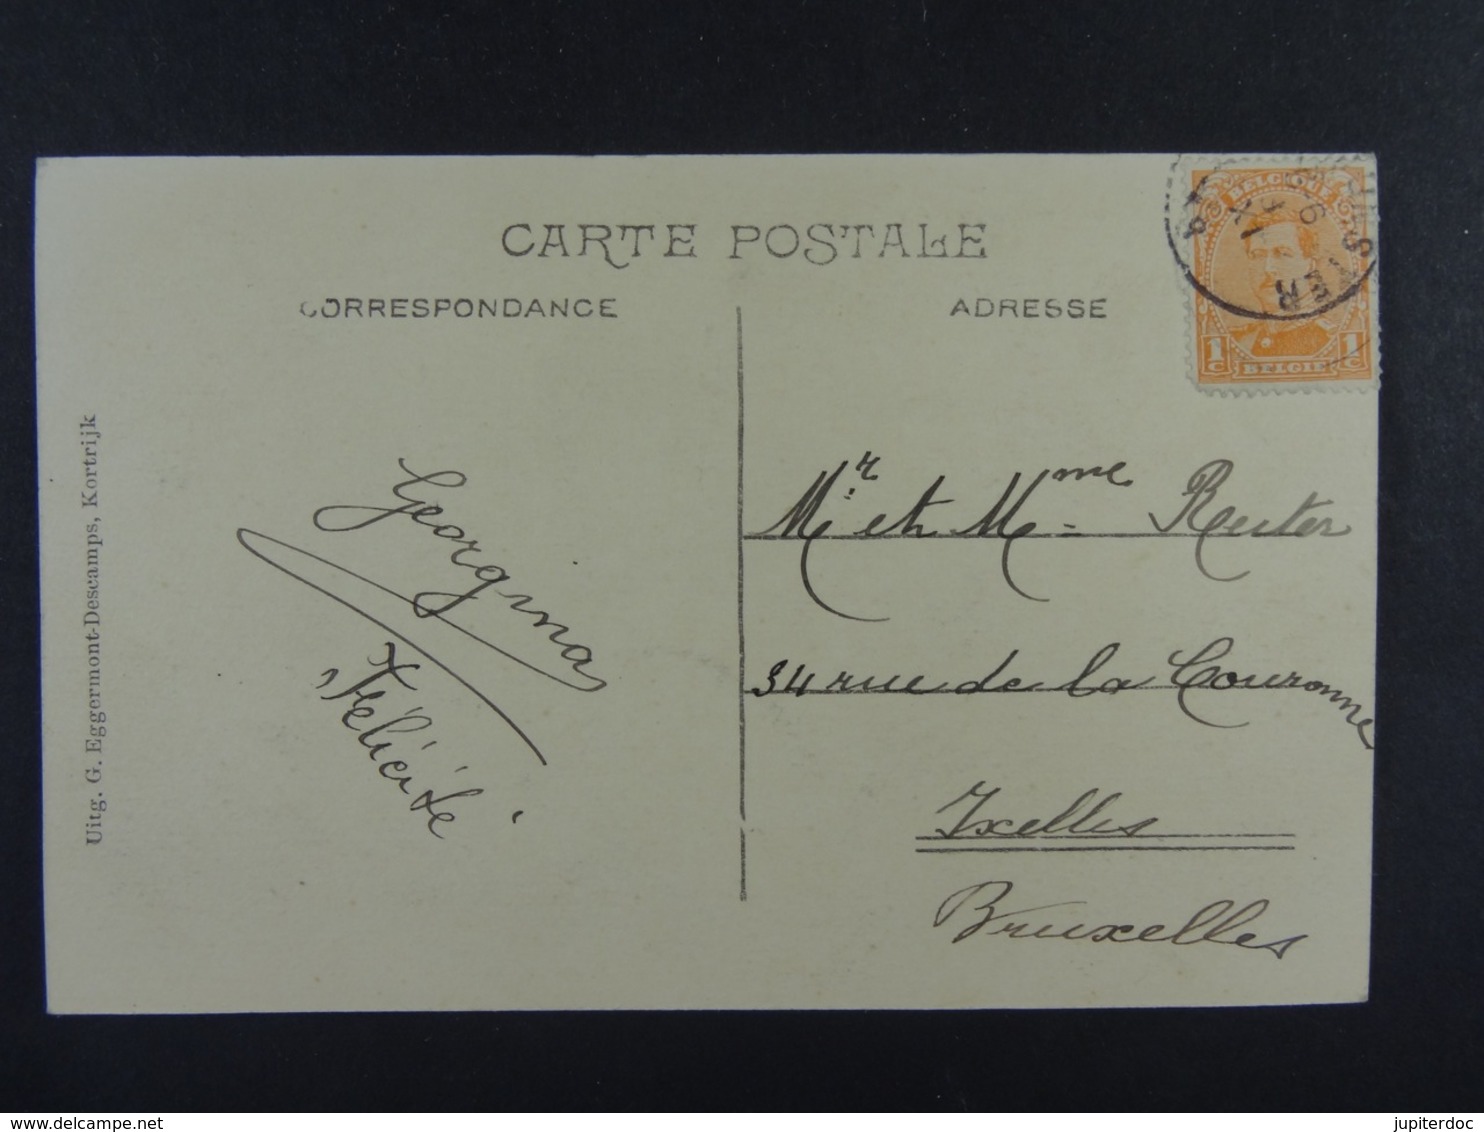 CARTE POSTALE
CORRESPONDANCE
ADRESSE
BELGIQUE
1 C 1 C
BELGIE
Uitg. G. Eggermont-Descamps, Kortrijk
Georgina
Félicité
Mr et Mme Reuter
34 rue de la Couronne
Ixelles
Bruxelles
www.delcampe.net
jupiterdoc